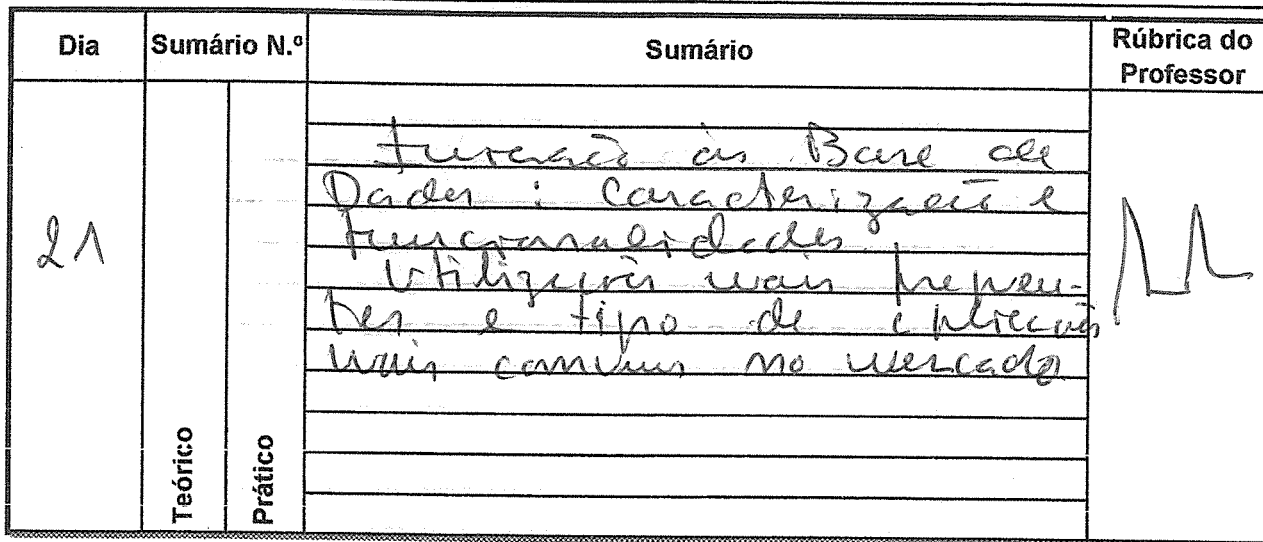 Dia Sumário N.º Sumário Rúbrica do Professor
Teórico
Prático
21
às Base de
Dados : Caracterização e
funcionalidades.
Utilizações mais frequen-
tes e tipo de aplicações
mais comuns no mercado